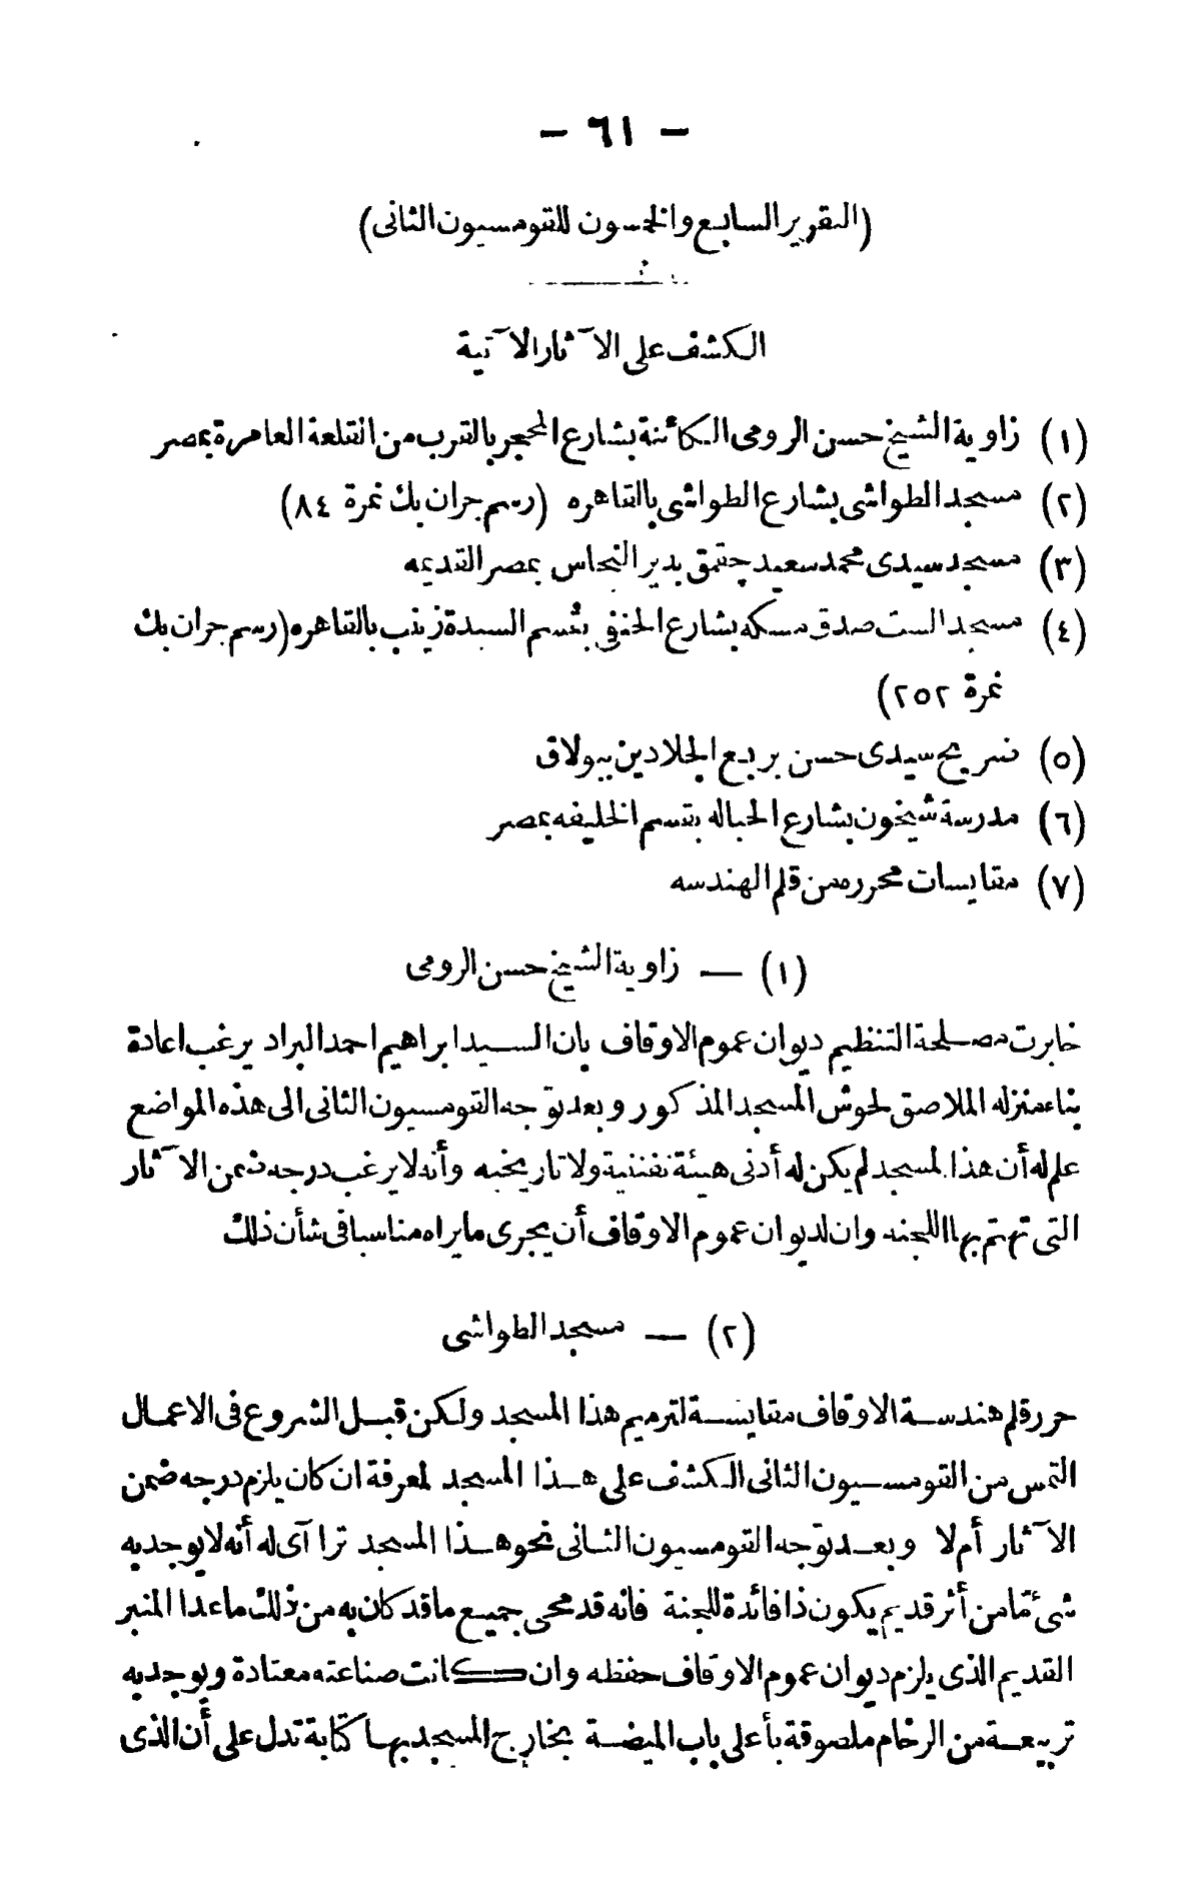 — ٦١ —
(التقرير السابع والخمسون للقومسيون الثانى)
الكشف على الآثار الآتية
(١) زاوية الشيخ حسن الرومى الكائنة بشارع المحجر بالقرب من القلعة العامرة بمصر
(٢) مسجد الطواشى بشارع الطواشى بالقاهره (رسم جران بك نمرة ٨٤)
(٣) مسجد سيدى محمد سعيد جقمق بدير النحاس بمصر القديمه
(٤) مسجد الست صدق مسكه بشارع الحنفى بقسم السيدة زينب بالقاهره (رسم جران بك
نمرة ٢٥٢)
(٥) ضريح سيدى حسن بربع الجلادين ببولاق
(٦) مدرسة شيخون بشارع الحباله بقسم الخليفه بمصر
(٧) مقايسات محرره من قلم الهندسه
(١) — زاوية الشيخ حسن الرومى
خابرت مصلحة التنظيم ديوان عموم الاوقاف بان السيد ابراهيم احمد البراد يرغب اعادة
بناء منزله الملاصق لحوش المسجد المذكور وبعد توجه القومسيون الثانى الى هذه المواضع
علم له أن هذا المسجد لم يكن له أدنى هيئة تفننية ولا تاريخيه وأنه لا يرغب درجه ضمن الآثار
التى تهتم بها اللجنه وان لديوان عموم الاوقاف أن يجرى ما يراه مناسبا فى شأن ذلك
(٢) — مسجد الطواشى
حرر قلم هندسة الاوقاف مقايسة لترميم هذا المسجد ولكن قبل الشروع فى الاعمال
التمس من القومسيون الثانى الكشف على هذا المسجد لمعرفة ان كان يلزم درجه ضمن
الآثار أم لا وبعد توجه القومسيون الثانى نحو هذا المسجد تراآى له أنه لا يوجد به
شئ ما من أثر قديم يكون ذا فائدة للجنة فانه قد محى جميع ما قد كان به من ذلك ما عدا المنبر
القديم الذى يلزم ديوان عموم الاوقاف حفظه وان كانت صناعته معتادة ويوجد به
تربيعة من الرخام ملصوقة بأعلى باب الميضة بخارج المسجد بها كتابة تدل على أن الذى